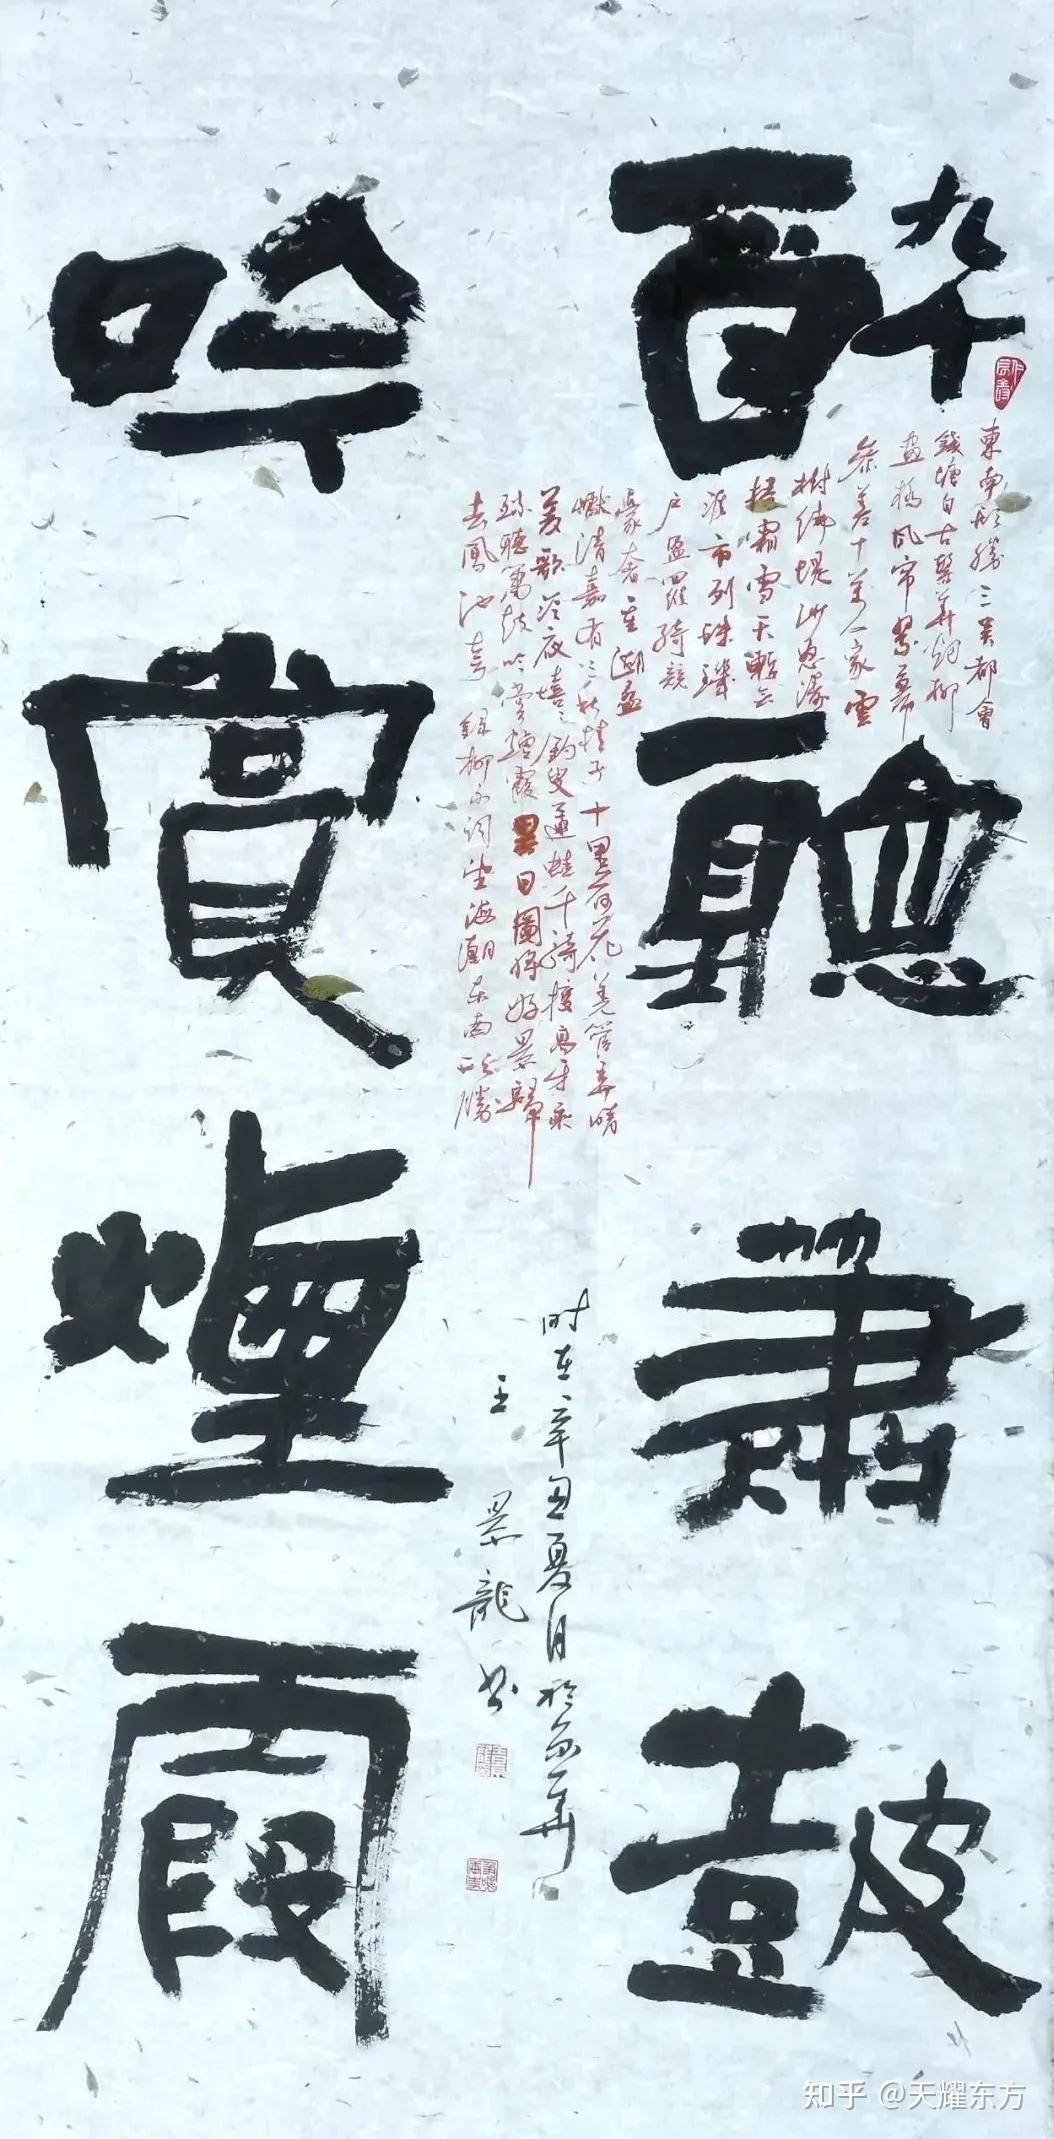 酔聽蕭皷
吟賞煙霞
東南形勝三吴都會
錢塘自古繁華烟柳
畫橋風帘翠幕
參差十萬人家雲
樹绕堤沙怒濤
捲霜雪天塹無
涯市列珠璣
户盈羅綺競
豪奢重湖叠
巘清嘉有三秋桂子十里荷花羌管弄晴
菱歌泛夜嬉々釣叟蓮娃千騎擁高牙乘
酔聽簫鼓吟赏煙霞異日圖将好景歸
去鳳池夸 録柳永词望海潮东南形勝
时在辛丑夏日於京華
王景龍书
知乎 @天耀东方